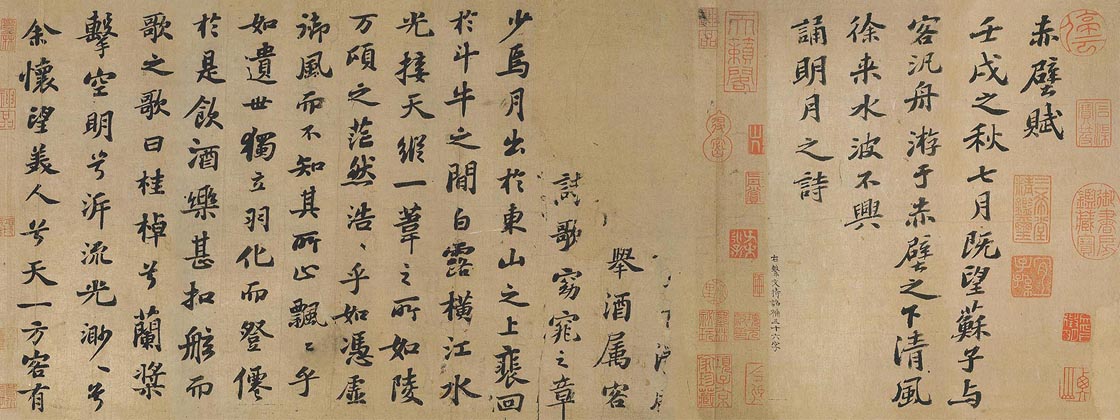 赤壁賦
壬戌之秋七月既望蘇子与
客汎舟游于赤壁之下清風
徐来水波不興
誦明月之詩
右繫文待詔補三十六字
舉酒属客
詩歌窈窕之章
少焉月出於東山之上裴回
於斗牛之間白露横江水
光接天縱一葦之所如陵
万頃之茫然浩〻乎如憑虚
御風而不知其所止飄〻乎
如遺世獨立羽化而登僊
於是飲酒樂甚扣舷而
歌之歌曰桂棹兮蘭槳
擊空明兮泝流光渺〻兮
余懷望美人兮天一方客有
天籟閣
三希堂精鑑璽
宜子孫